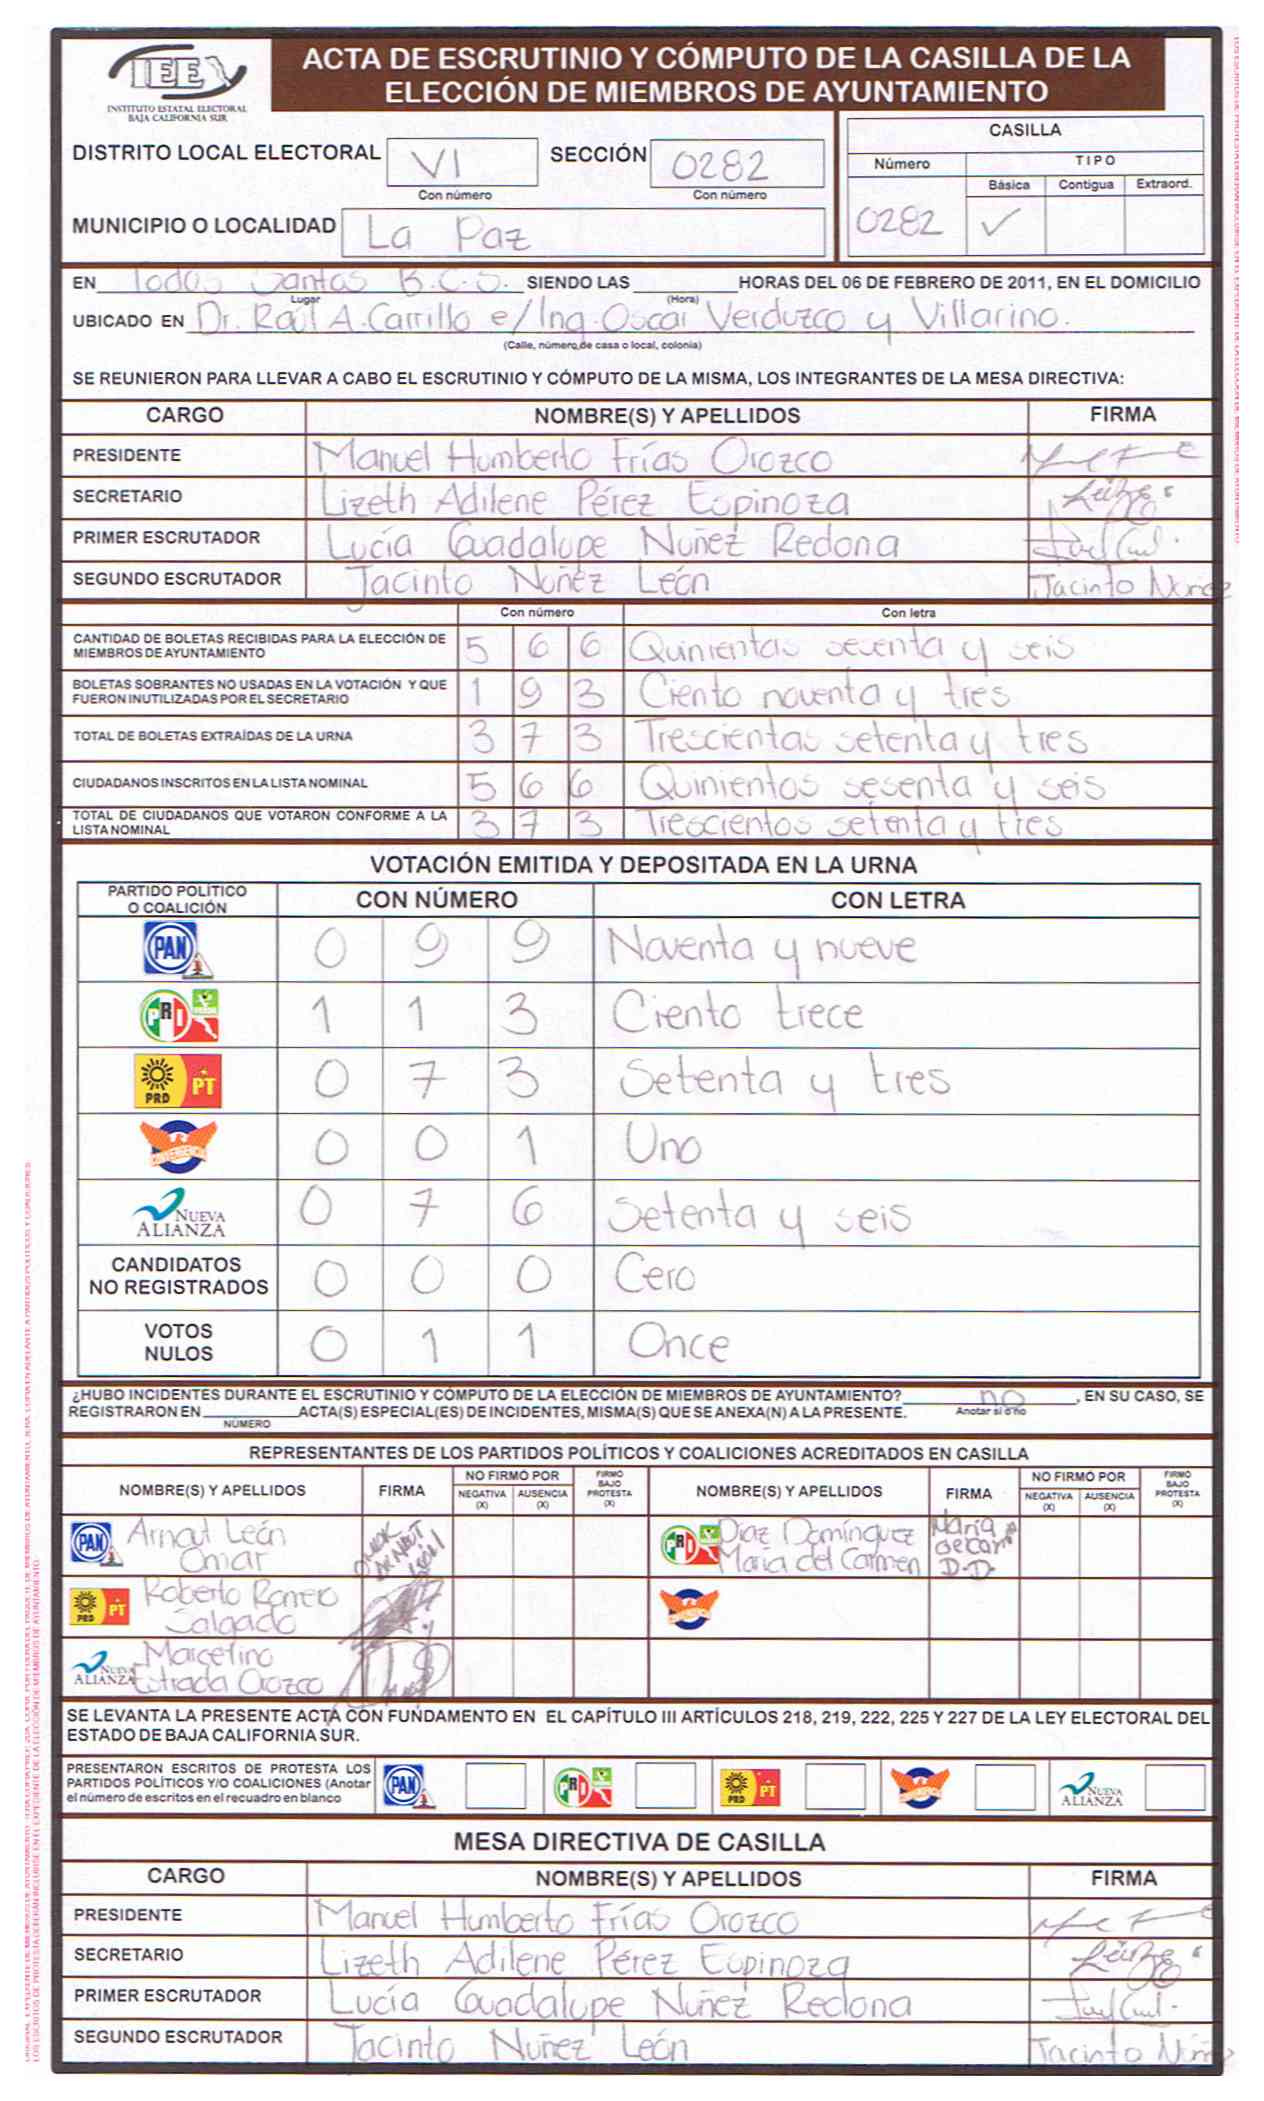 IEE
INSTITUTO ESTATAL ELECTORAL
BAJA CALIFORNIA SUR
ACTA DE ESCRUTINIO Y CÓMPUTO DE LA CASILLA DE LA
ELECCIÓN DE MIEMBROS DE AYUNTAMIENTO
DISTRITO LOCAL ELECTORAL VI SECCIÓN 0282
Con número Con número
MUNICIPIO O LOCALIDAD La Paz
CASILLA
Número TIPO
Básica Contigua Extraord.
0282 ✓
EN Todos Santos B.C.S. SIENDO LAS HORAS DEL 06 DE FEBRERO DE 2011, EN EL DOMICILIO
Lugar (Hora)
UBICADO EN Dr. Raúl A. Carrillo e/Ing. Oscar Verduzco y Villarino.
(Calle, número de casa o local, colonia)
SE REUNIERON PARA LLEVAR A CABO EL ESCRUTINIO Y CÓMPUTO DE LA MISMA, LOS INTEGRANTES DE LA MESA DIRECTIVA:
CARGO NOMBRE(S) Y APELLIDOS FIRMA
PRESIDENTE Manuel Humberto Frías Orozco
SECRETARIO Lizeth Adilene Pérez Espinoza
PRIMER ESCRUTADOR Lucía Guadalupe Nuñez Redona
SEGUNDO ESCRUTADOR Jacinto Nuñez León Jacinto Nuñez
Con número Con letra
CANTIDAD DE BOLETAS RECIBIDAS PARA LA ELECCIÓN DE
MIEMBROS DE AYUNTAMIENTO 5 6 6 Quinientas sesenta y seis
BOLETAS SOBRANTES NO USADAS EN LA VOTACIÓN Y QUE
FUERON INUTILIZADAS POR EL SECRETARIO 1 9 3 Ciento noventa y tres
TOTAL DE BOLETAS EXTRAÍDAS DE LA URNA 3 7 3 Trescientas setenta y tres
CIUDADANOS INSCRITOS EN LA LISTA NOMINAL 5 6 6 Quinientos sesenta y seis
TOTAL DE CIUDADANOS QUE VOTARON CONFORME A LA
LISTA NOMINAL 3 7 3 Trescientos setenta y tres
VOTACIÓN EMITIDA Y DEPOSITADA EN LA URNA
PARTIDO POLÍTICO
O COALICIÓN CON NÚMERO CON LETRA
PAN 0 9 9 Noventa y nueve
PRI VERDE 1 1 3 Ciento trece
PRD PT 0 7 3 Setenta y tres
CONVERGENCIA 0 0 1 Uno
NUEVA ALIANZA 0 7 6 Setenta y seis
CANDIDATOS
NO REGISTRADOS 0 0 0 Cero
VOTOS
NULOS 0 1 1 Once
¿HUBO INCIDENTES DURANTE EL ESCRUTINIO Y CÓMPUTO DE LA ELECCIÓN DE MIEMBROS DE AYUNTAMIENTO? no, EN SU CASO, SE
REGISTRARON EN ACTA(S) ESPECIAL(ES) DE INCIDENTES, MISMA(S) QUE SE ANEXA(N) A LA PRESENTE. Anotar si o no
NÚMERO
REPRESENTANTES DE LOS PARTIDOS POLÍTICOS Y COALICIONES ACREDITADOS EN CASILLA
NOMBRE(S) Y APELLIDOS FIRMA NO FIRMÓ POR NEGATIVA (X) AUSENCIA (X) FIRMÓ BAJO PROTESTA (X) NOMBRE(S) Y APELLIDOS FIRMA NO FIRMÓ POR NEGATIVA (X) AUSENCIA (X) FIRMÓ BAJO PROTESTA (X)
PAN Arnaut León Omar OMAR ARNAUT LEON PRI Diaz Domínguez María del Carmen María del Carm D.D.
PRD PT Roberto Romero Salgado CONVERGENCIA
NUEVA ALIANZA Marcelino Estrada Orozco
SE LEVANTA LA PRESENTE ACTA CON FUNDAMENTO EN EL CAPÍTULO III ARTÍCULOS 218, 219, 222, 225 Y 227 DE LA LEY ELECTORAL DEL
ESTADO DE BAJA CALIFORNIA SUR.
PRESENTARON ESCRITOS DE PROTESTA LOS
PARTIDOS POLÍTICOS Y/O COALICIONES (Anotar
el número de escritos en el recuadro en blanco
PAN PRI PRD PT CONVERGENCIA NUEVA ALIANZA
MESA DIRECTIVA DE CASILLA
CARGO NOMBRE(S) Y APELLIDOS FIRMA
PRESIDENTE Manuel Humberto Frías Orozco
SECRETARIO Lizeth Adilene Pérez Espinoza
PRIMER ESCRUTADOR Lucía Guadalupe Nuñez Redona
SEGUNDO ESCRUTADOR Jacinto Nuñez León Jacinto Nuñez